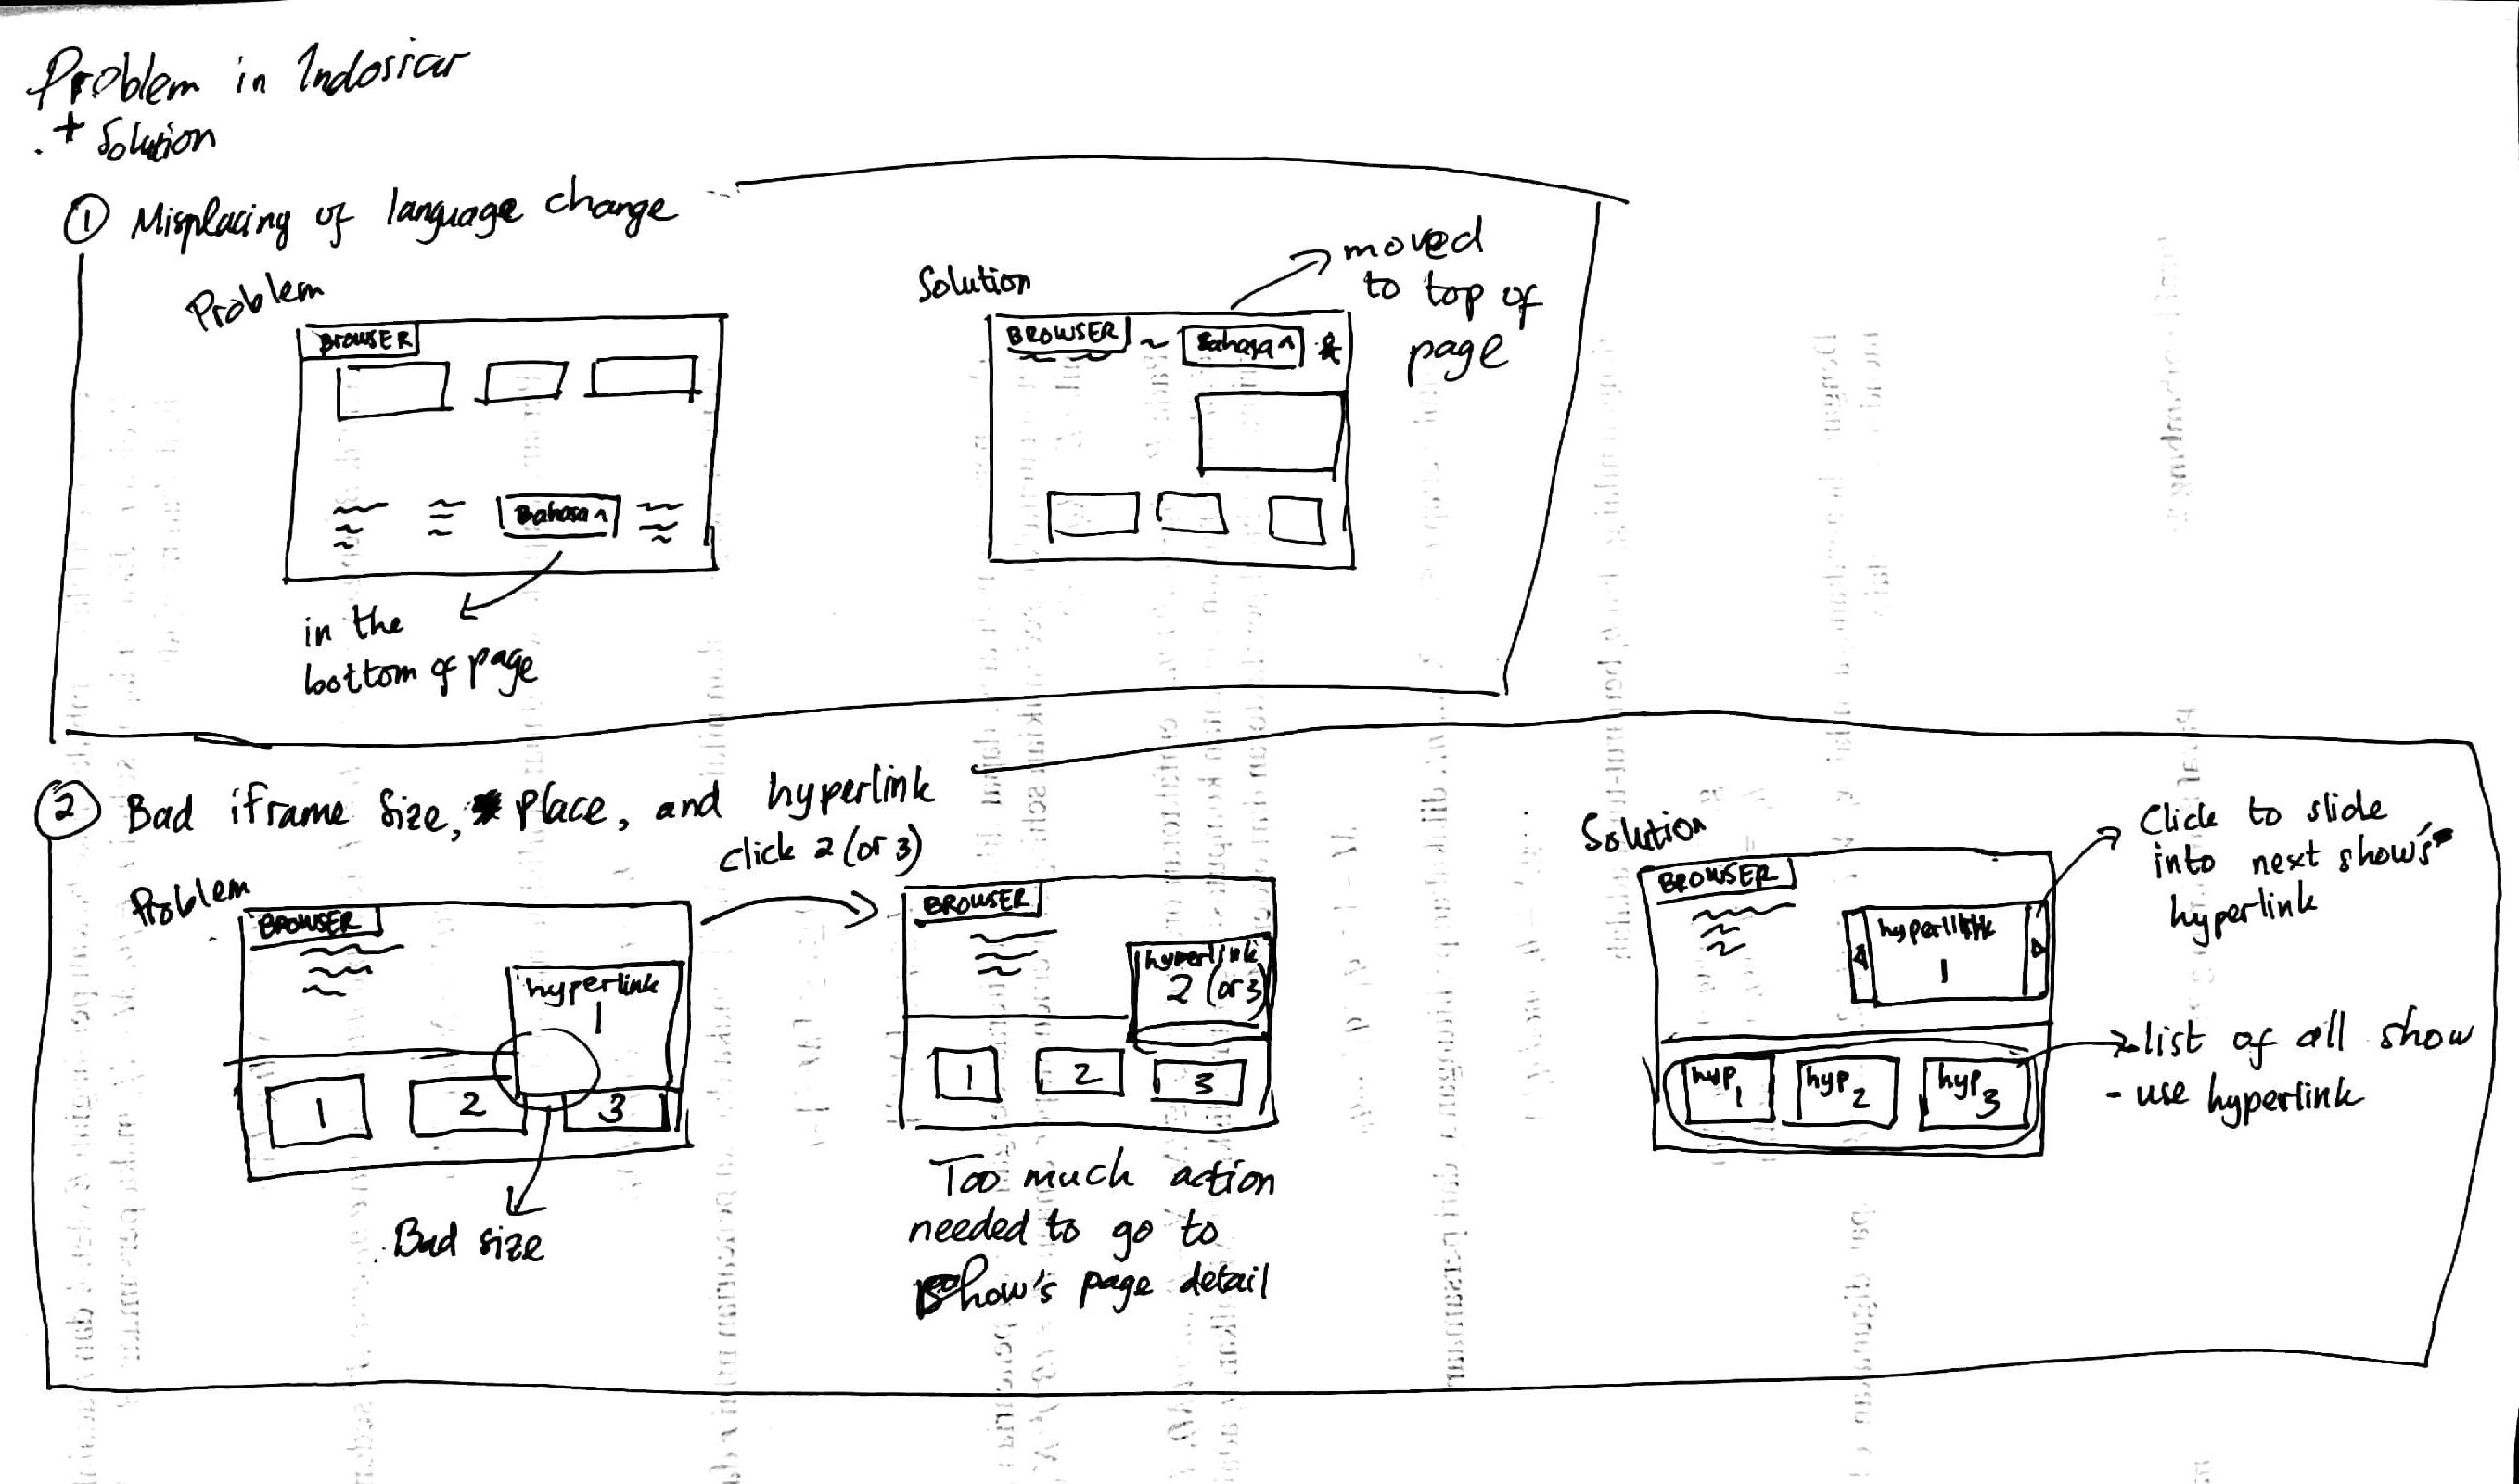 Problem in Indosiar
+ Solution
1 Misplacing of language change
Problem
BROWSER
Bahasa ^
in the
bottom of page
Solution
BROWSER ~ Bahasa ^
moved
to top of
page
2 Bad iframe size, place, and hyperlink
Problem
BROWSER
hyperlink
1
1 2 3
Bad size
click 2 (or 3)
BROWSER
hyperlink
2 (or 3)
1 2 3
Too much action
needed to go to
show's page detail
Solution
BROWSER
hyperlink
1
hyp 1 hyp 2 hyp 3
Click to slide
into next show's
hyperlink
- list of all show
- use hyperlink